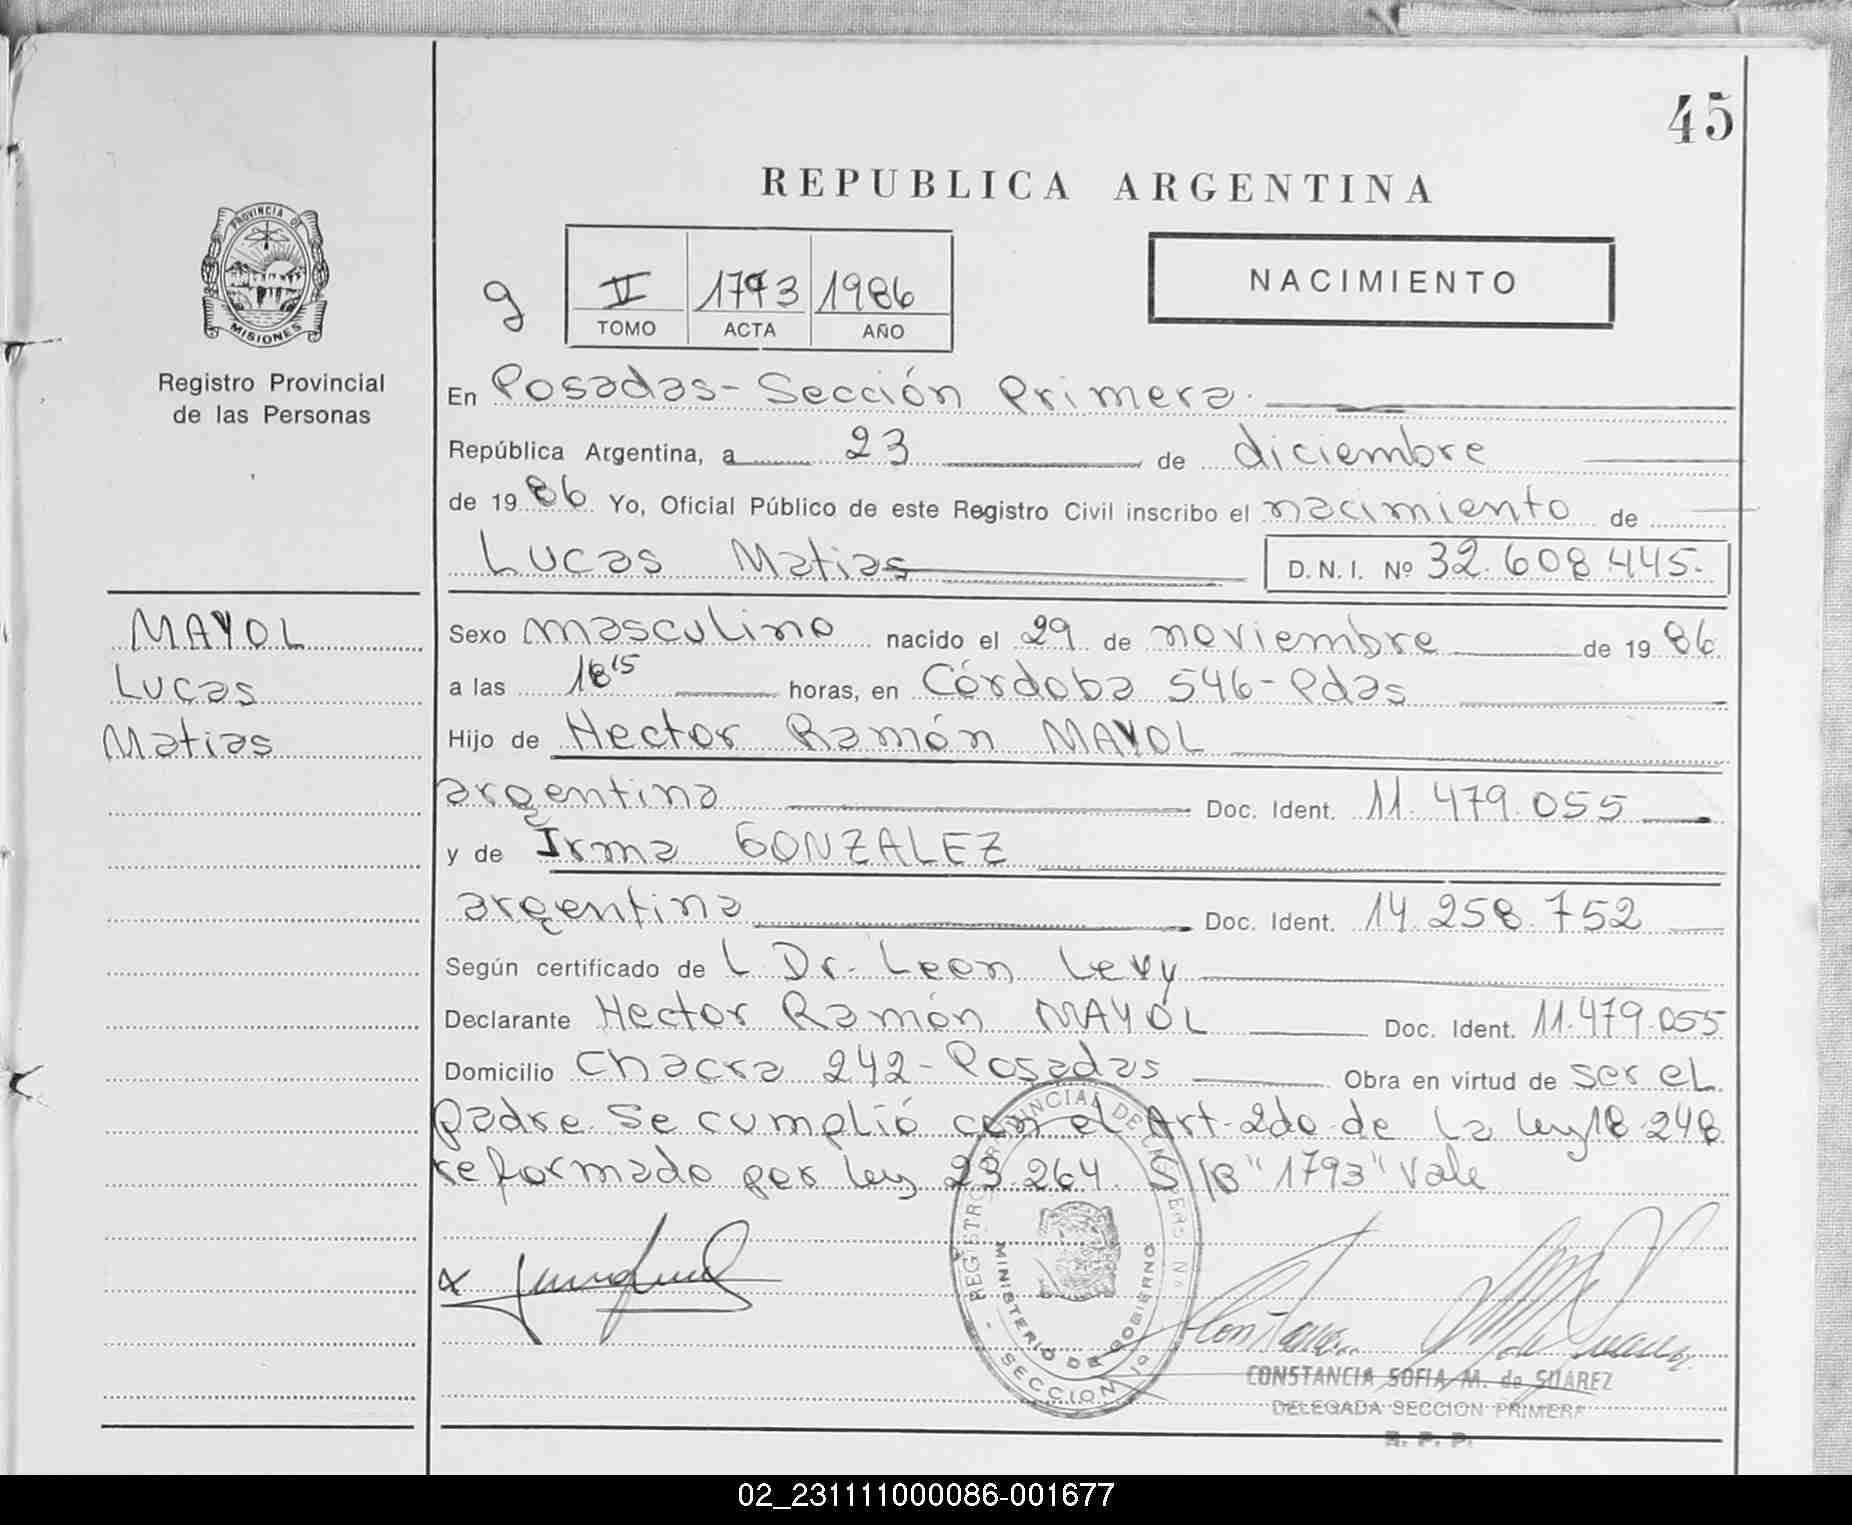 45
REPUBLICA ARGENTINA
PROVINCIA DE
MISIONES
Registro Provincial
de las Personas
g
II 1793 1986
TOMO ACTA AÑO
NACIMIENTO
En Posadas - Sección Primera.
República Argentina, a 23 de diciembre
de 1986 Yo, Oficial Público de este Registro Civil inscribo el nacimiento de
Lucas Matias D.N.I. Nº 32.608.445.-
MAYOL
Lucas
Matias
Sexo masculino nacido el 29 de noviembre de 1986
a las 18 15 horas, en Córdoba 546 - Pdas
Hijo de Hector Ramón MAYOL
argentina Doc. Ident. 11.479.055
y de Irma GONZALEZ
argentina Doc. Ident. 14.258.752
Según certificado de L. Dr. Leon Levy
Declarante Hector Ramón MAYOL Doc. Ident. 11.479.055
Domicilio Chacra 242 - Posadas Obra en virtud de ser el
padre. Se cumplió con el Art. 2do. de la ley 18.248
reformado por ley 23.264. S/B "1793" Vale
MINISTERIO DE GOBIERNO
SECCION 1a
CONSTANCIA SOFIA M. de SUAREZ
DELEGADA SECCION PRIMERA
R. P. P.
02_231111000086-001677